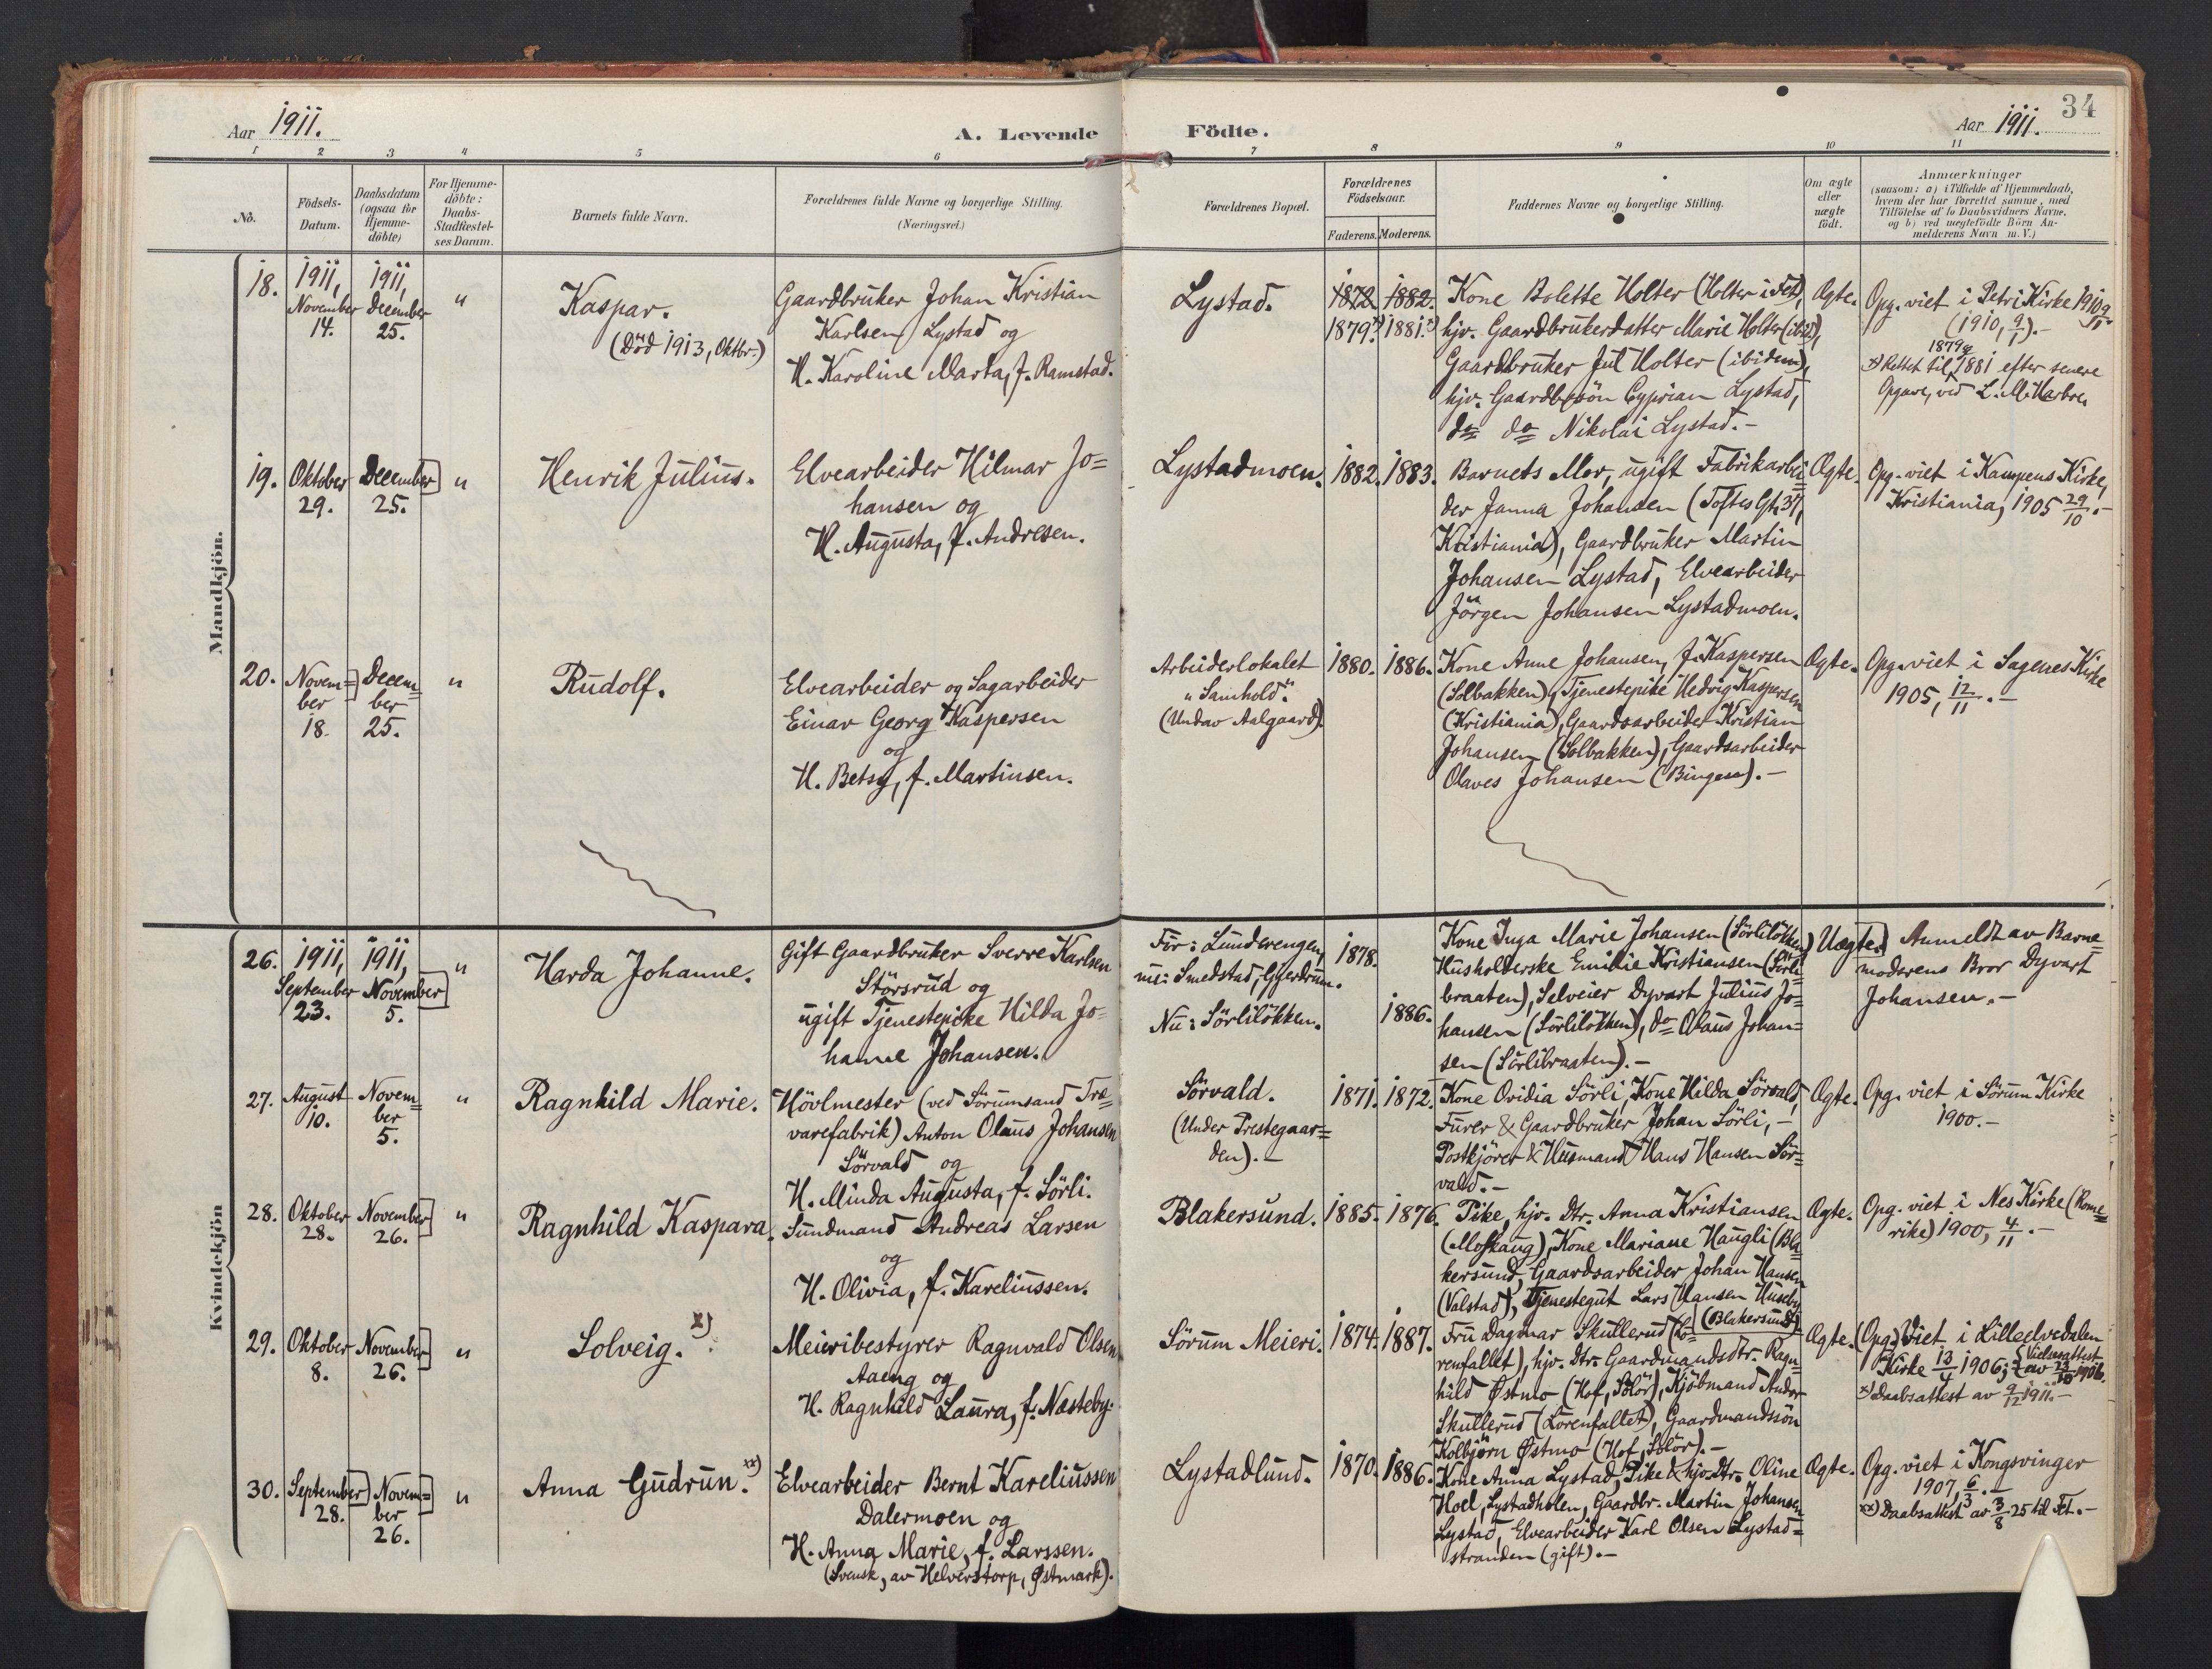 Aar 1911.
A. Levende Födte.
Aar 1911.
34
1 2 3 4 5 6 7 8 9 10 11
No.
Födsels-
Datum.
Daabsdatum
(ogsaa for
Hjemme-
döbte)
For Hjemme-
döbte:
Daabs-
Stadfæstel-
ses Datum.
Barnets fulde Navn.
Forældrenes fulde Navne og borgerlige Stilling.
(Næringsvei.)
Forældrenes Bopæl.
Forældrenes
Födselsaar.
Faderens. Moderens.
Faddernes Navne og borgerlige Stilling.
Om ægte
eller
uægte
födt.
Anmærkninger
(saasom: a) i Tilfælde af Hjemmedaab,
hvem der har forrettet samme, med
Tilföielse af to Daabsvidners Navne.
og b) ved uægtefödte Börn An-
melderens Navn m. V.)
Mandkjön.
18.
1911,
November
14.
1911,
December
25.
"
Kaspar.
(Död 1913, Oktbr.)
Gaardbruker Johan Kristian
Karlsen Lystad og
H. Karoline Marta, f. Ramstad.
Lystad.
1872. 1882.
1879.x) 1881.x)
Kone Bolette Holter (Holter i Fet),
hjv. Gaardbrukerdatter Marie Holter (ibid),
Gaardbruker Jul Holter (ibidem),
hjv. Gaardbr.sön Cyprian Lystad,
do do Nikolai Lystad.-
Ægte.
Opg. viet i Petri Kirke 1910 9/11
(1910, 9/1).-
1879 &
x) Rettet til 1881 efter senere
Opgave, ved L. M.
19.
Oktober
29.
December
25.
"
Henrik Julius.
Elvearbeider Hilmar Jo=
hansen og
H. Augusta, f. Andresen.
Lystadmoen.
1882. 1883.
Barnets Mor, ugift Fabrikarbei=
der Janna Johansen (Toftes Gt. 37,
Kristiania), Gaardbruker Martin
Johansen Lystad, Elvearbeider
Jörgen Johansen Lystadmoen.
Ægte.
Opg. viet i Kampens Kirke,
Kristiania, 1905 29/10.-
20.
Novem=
ber
18.
Decem=
ber
25.
"
Rudolf.
Elvearbeider og Sagarbeider
Einar Georg Kaspersen
og
H. Betsy, f. Martinsen.
Arbeiderlokalet
"Samhold".
(Undav Aalgaard).
1880. 1886.
Kone Anne Johansen, f. Kaspersen
(Solbakken), Tjenestepike Hedvig Kaspersen
(Kristiania), Gaardsarbeider Kristian
Johansen (Solbakken), Gaardsarbeider
Olaves Johansen (Bingen).-
Ægte.
Opg. viet i Sagenes Kirke
1905, 12/11.-
Kvindekjön
26.
1911,
September
23.
1911,
November
5.
"
Harda Johanne.
Gift Gaardbruker Sverre Karlsen
Störsrud og
ugift Tjenestepike Hilda Jo=
hanne Johansen.
Før: Lunderengen,
Smedstad, Gjerdrum.
Nu: Sörliløkken.
1878.
1886.
Kone Inga Marie Johansen (Sörliløkken)
Husholderske Emilie Kristiansen (Sörli=
braaten), Selveier Dyvart Julius Jo=
hansen (Sörliløkken), do Olaus Johan=
sen (Sörlibraaten).-
Uægte.
Anmeldt av Barne=
moderens Bror Dyvart
Johansen.-
27.
August
10.
Novem=
ber
5.
"
Ragnhild Marie.
Hövlmester (ved Sörumsand Træ=
varefabrik) Anton Olaus Johansen
Sörvald og
H. Minda Augusta, f. Sörli.
Sörvald.
(Under Prestegaar=
den).-
1871. 1872.
Kone Ovidia Sörli, Kone Hilda Sörvald,
Furer & Gaardbruker Johan Sörli,-
Postkjörer & Husmand Hans Hansen Sör=
vald.-
Ægte.
Opg. viet i Sörum Kirke
1900.-
28.
Oktober
28.
November
26.
"
Ragnhild Kaspara.
Sundmand Andreas Larsen
og
H. Olivia, f. Kareliussen.
Blakersund.
1885. 1876.
Pike, hjv. Dtr. Anna Kristiansen
(Moskaug), Kone Mariane Haugli (Bla=
kersund, Gaardsarbeider Johan Hansen
(Valstad), Tjenestegut Lars Hansen Huseby
(Blakersund)
Ægte.
Opg. viet i Nes Kirke (Rome=
rike) 1900, 4/11.-
29.
Oktober
8.
November
26.
"
Solveig. x)
Meieribestyrer Ragnvald Olsen
Aaeng og
H. Ragnhild Laura, f. Næsteby.
Sörum Meieri.
1874. 1887.
Fru Dagmar Skullerud (Lö=
renfallet), hjv. Dtr. Gaardmandsdtr. Ragn=
hild Østmo (Hof, Solör), Kjöbmand Andr.
Skullerud (Lörenfallet), Gaardmandssön
Kolbjörn Østmo (Hof, Solör).-
Ægte.
(Opg.) Viet i Lilleelvedalen
Kirke 13/4 1906; {Vielsesattest
av 23/10 1906.
x) Daabsattest av 9/12 1911.-
30.
September
28.
Novem=
ber
26.
"
Anna Gudrun. xx)
Elvearbeider Bernt Kareliussen
Dalermoen og
H. Anna Marie, f. Larssen.
(Svensk, av Helverstorp, Østmark).
Lystadlund.
1870. 1886.
Kone Anna Lystad, Pike & hjv. Dtr. Oline
Hoel, Lystadholen, Gaardbr. Martin Johansen
Lystad, Elvearbeider Karl Olsen Lystad=
stranden (gift).-
Ægte.
Opg. viet i Kongsvinger
1907, 6/3.-
xx) Daabsattest av 3/8 25 til Fet.-